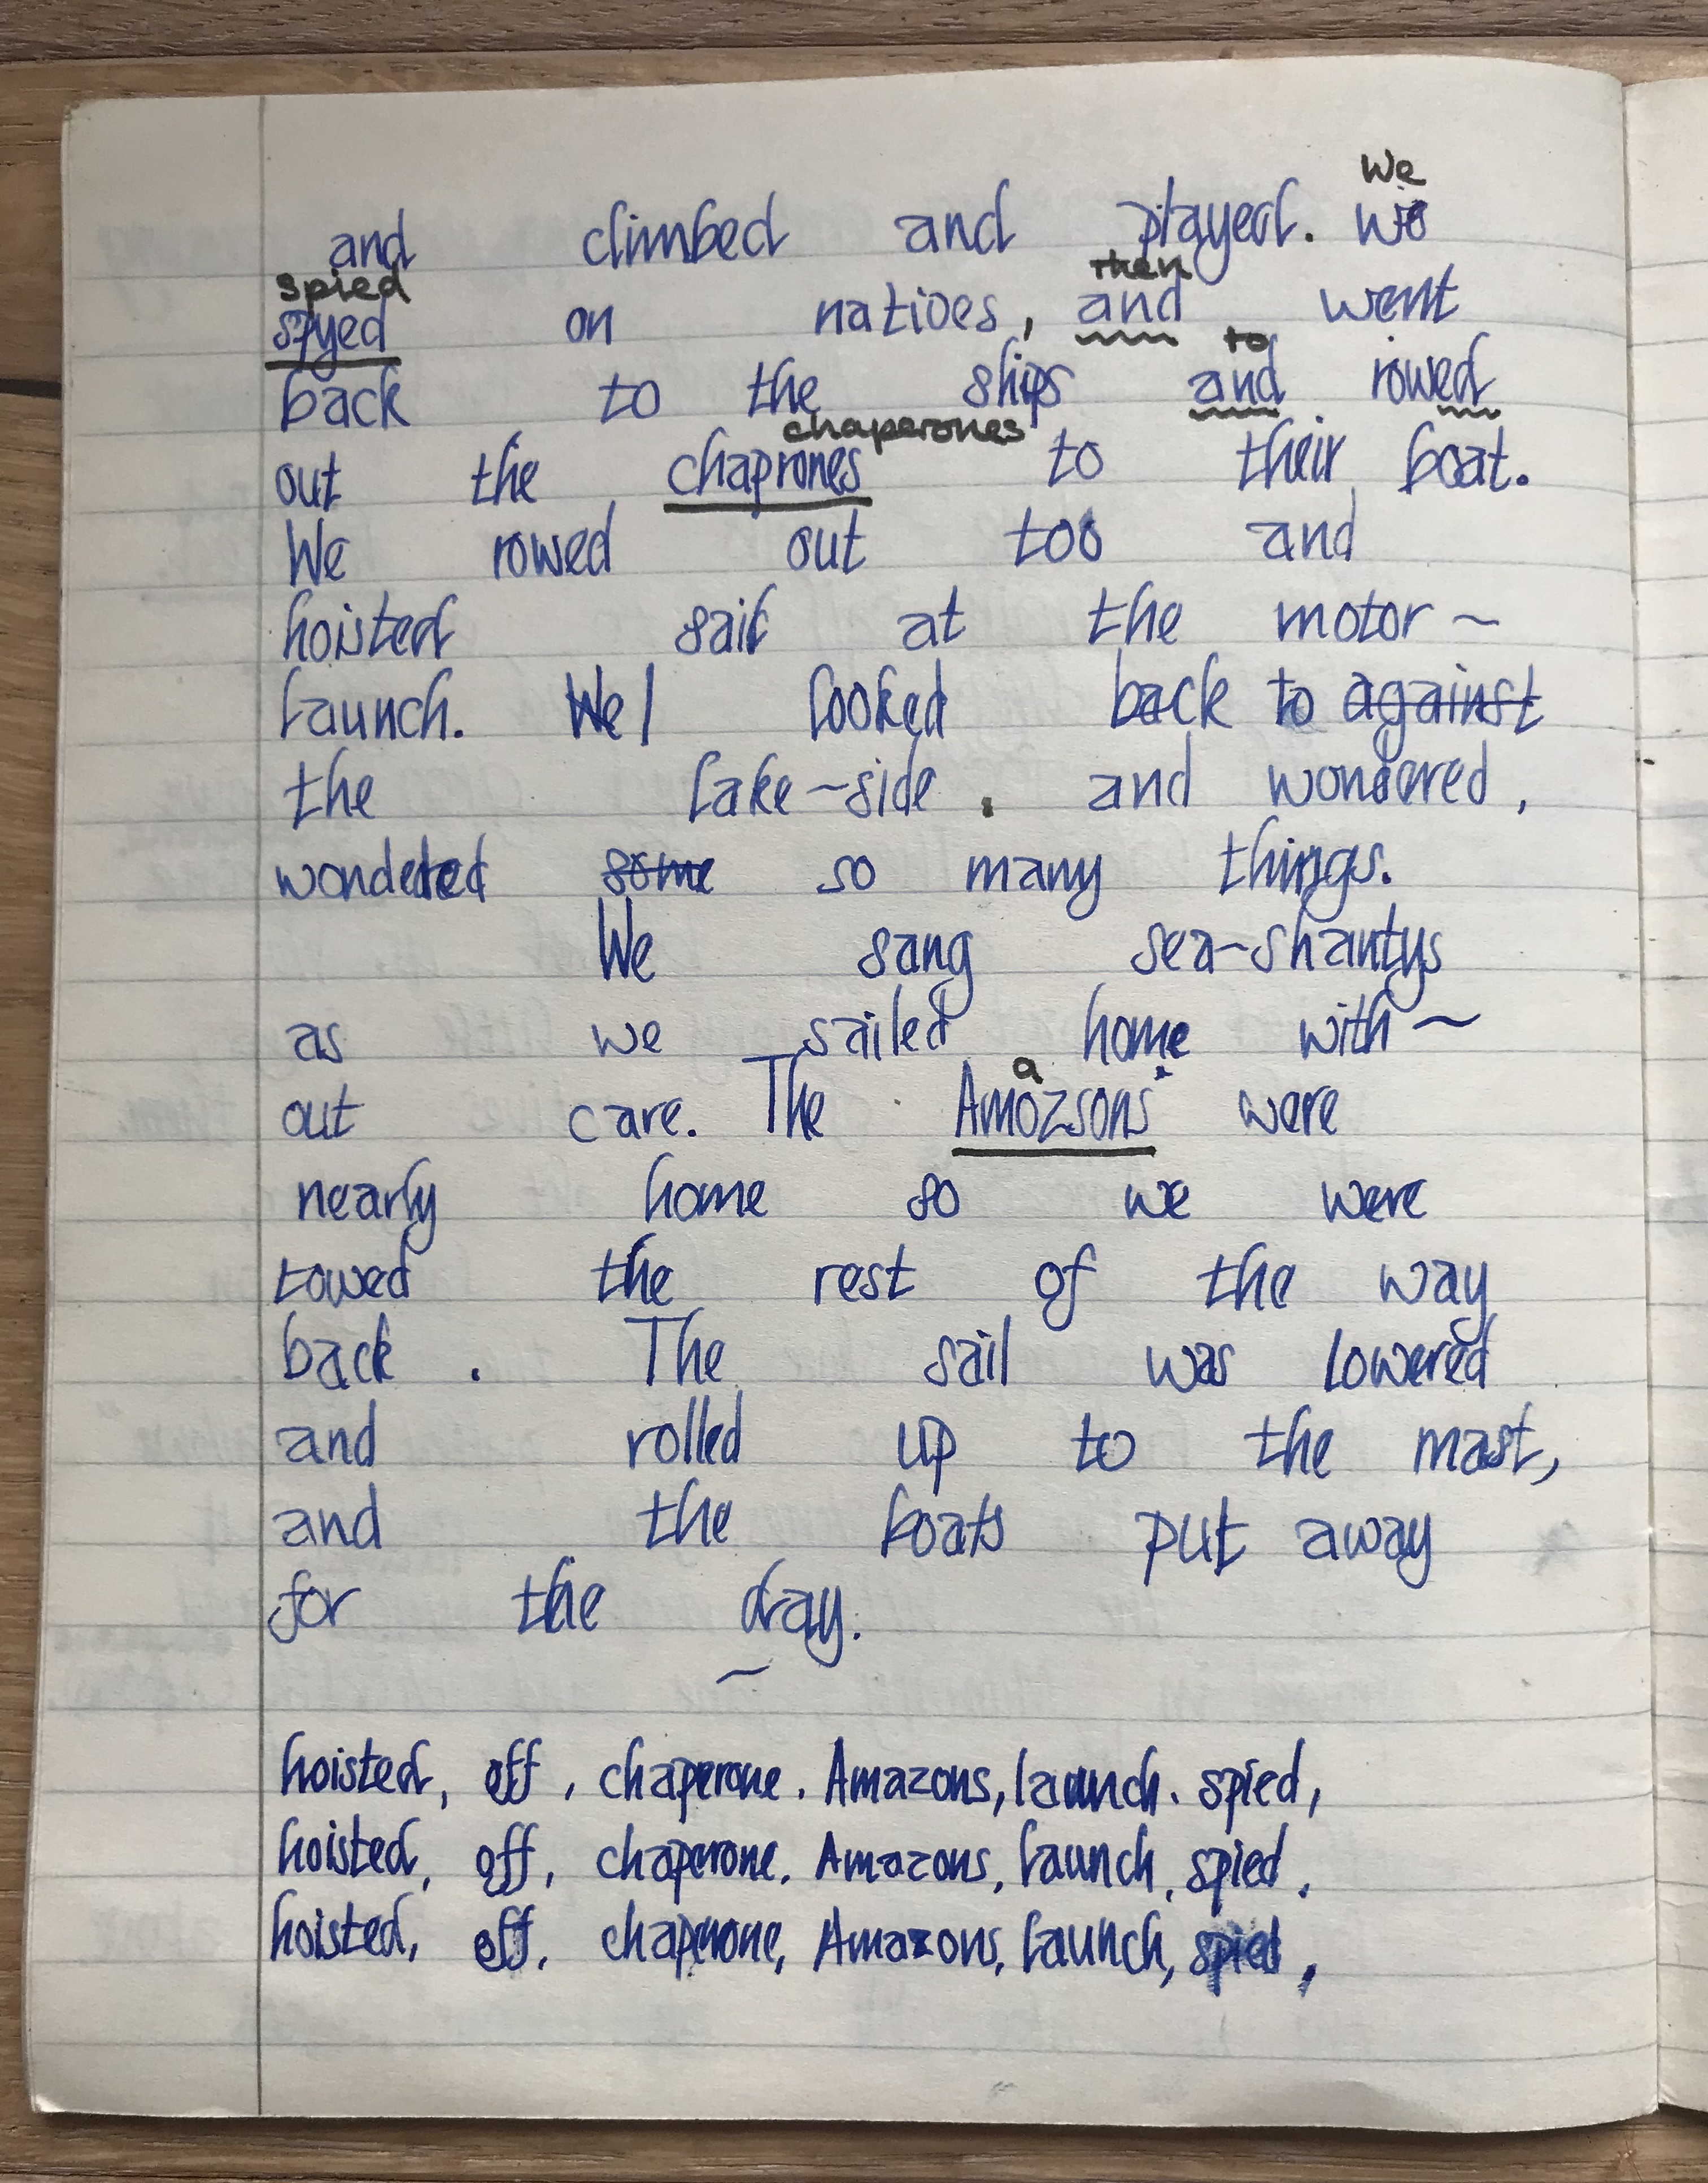 We
and climbed and played. we
spied then
spyed on natives, and went
to
back to the ships and rowed
chaperones
out the chaprones to their boat.
We rowed out too and
hoisted sail at the motor ~
launch. We I looked back to against
the lake~side. and wondered,
wondered some so many things.
We sang sea~shantys
as we sailed home with ~
a
out care. The Amozsons were
nearly home so we were
towed the rest of the way
back. The sail was lowered
and rolled up to the mast,
and the boats put away
for the day.
~
hoisted, off, chaperone. Amazons, launch. spied,
hoisted, off, chaperone. Amazons, launch, spied.
hoisted, off, chaperone, Amazons, launch, spied,